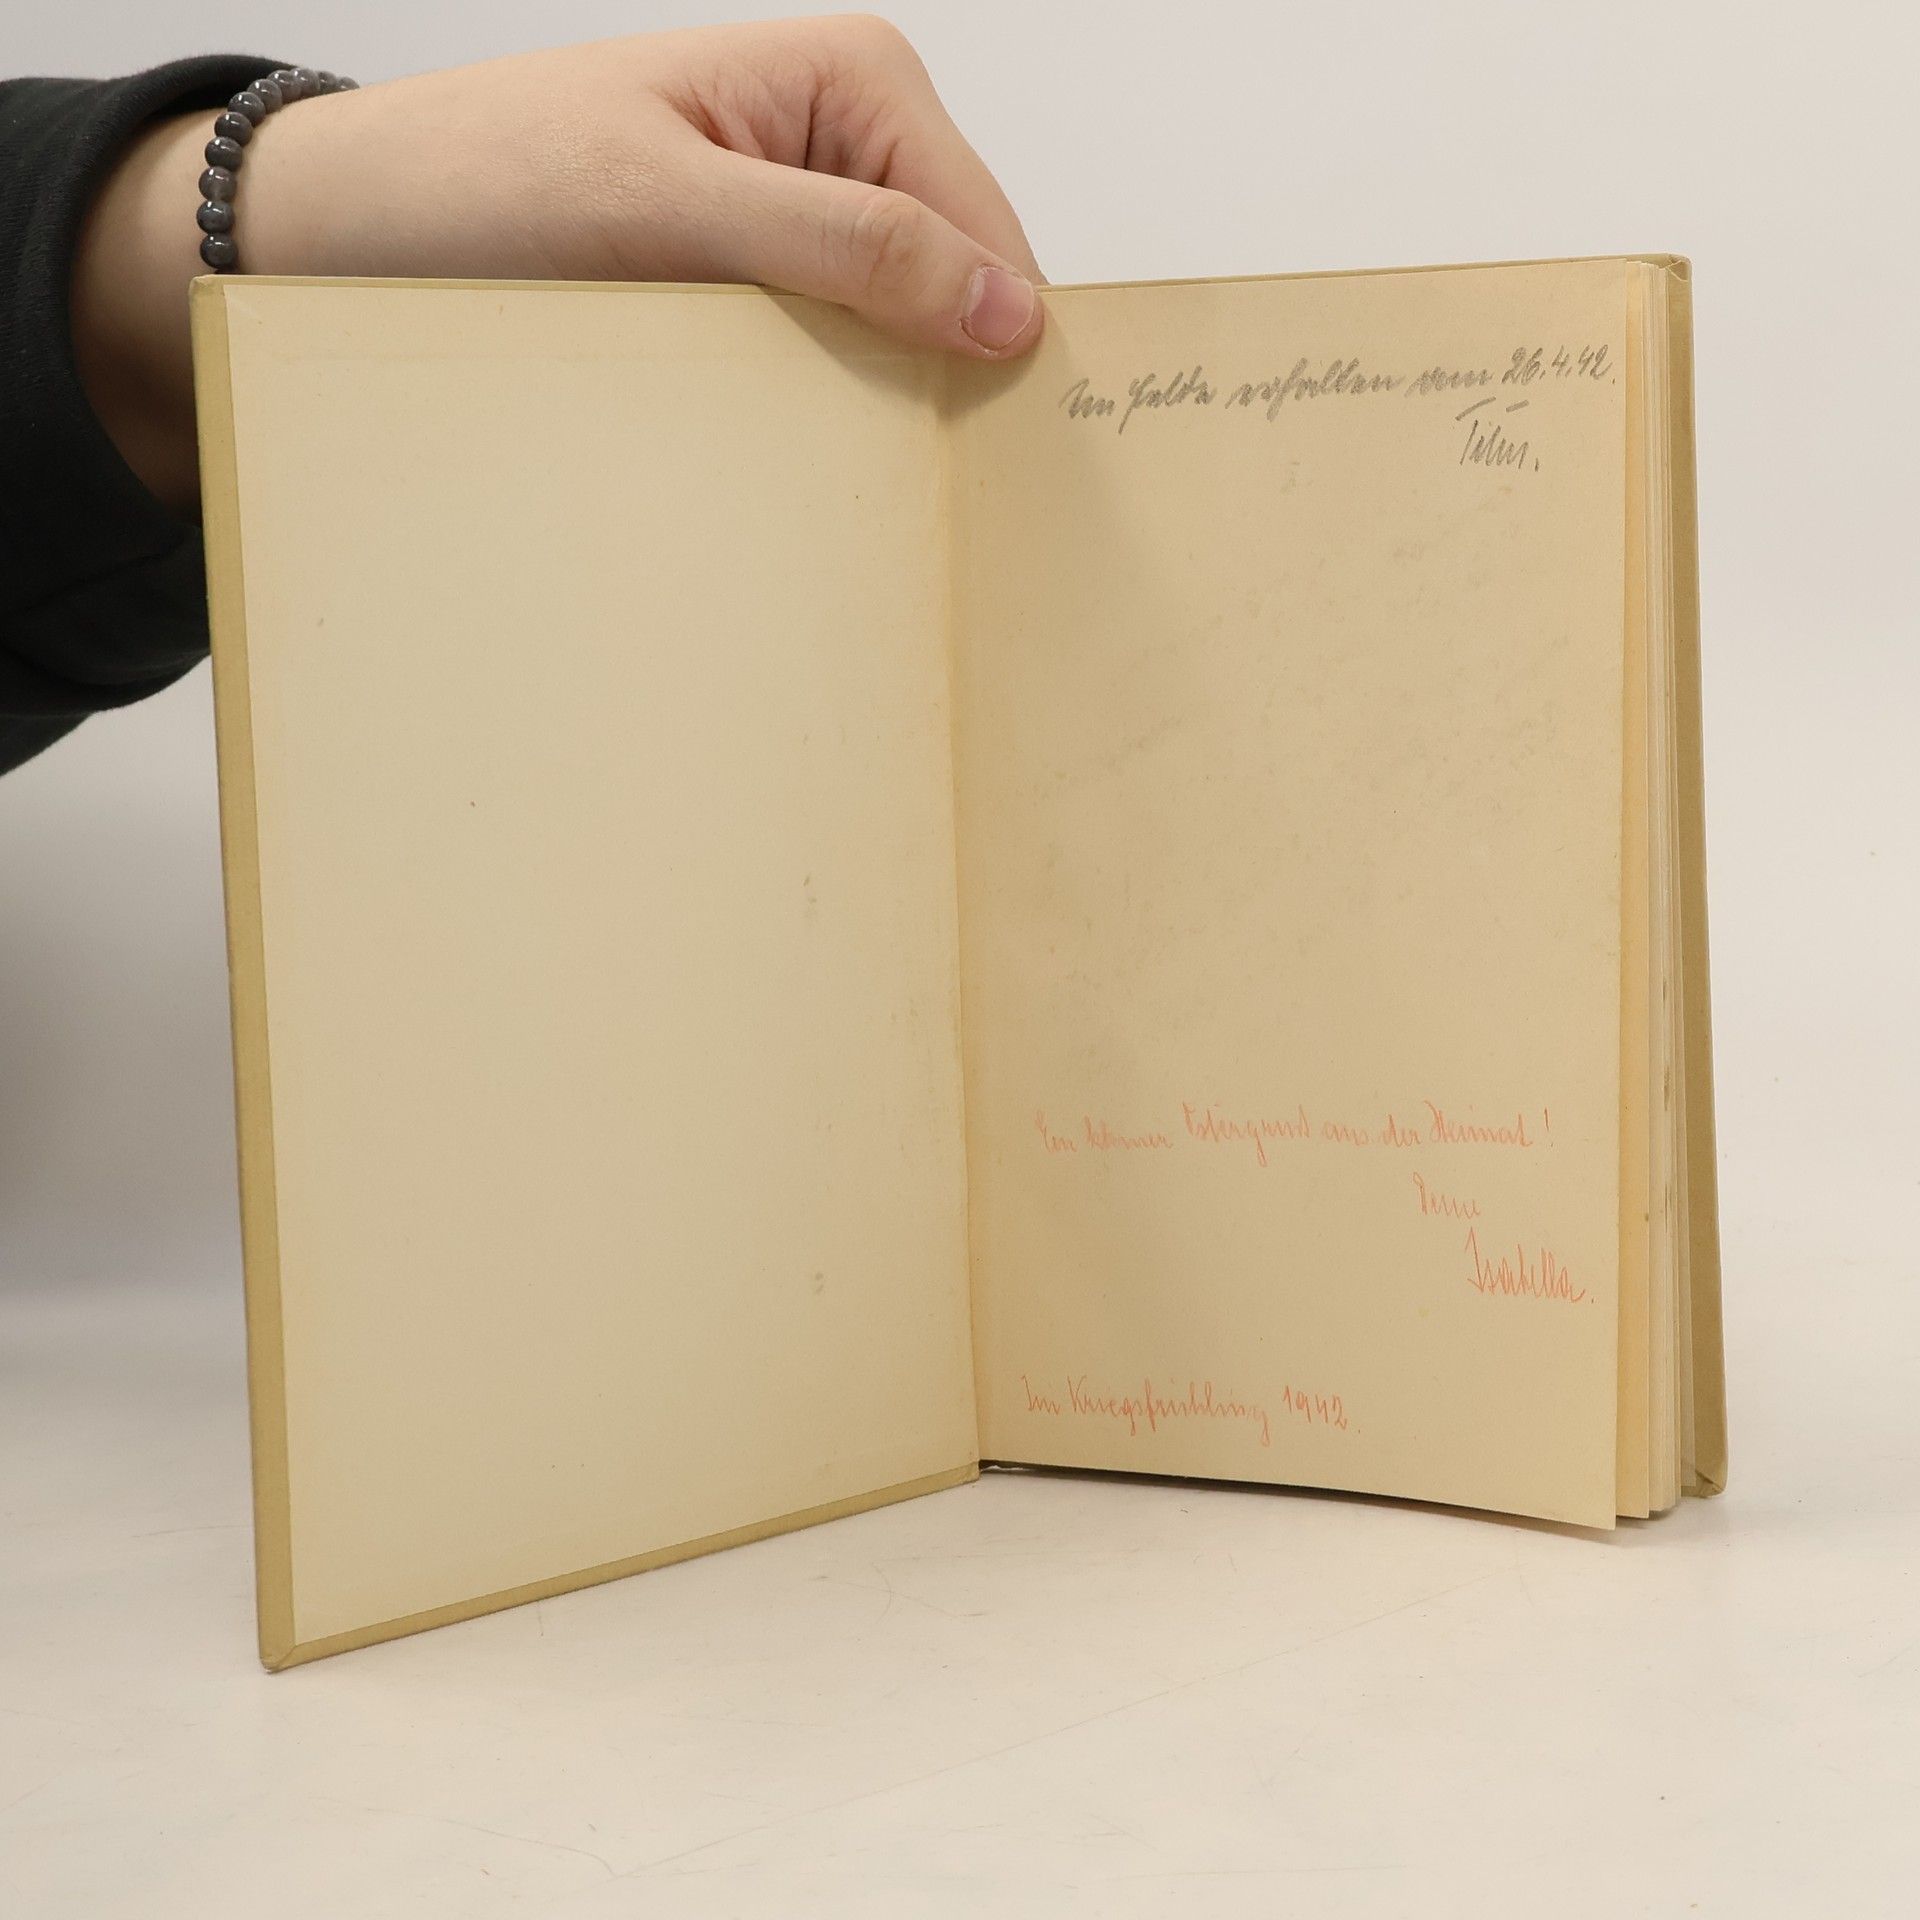 Im Felde erhalten vom 26.4.42.
Titus.
Ein kleiner Ostergruß aus der Heimat!
Deine
Isabella.
Im Kriegsfrühling 1942.